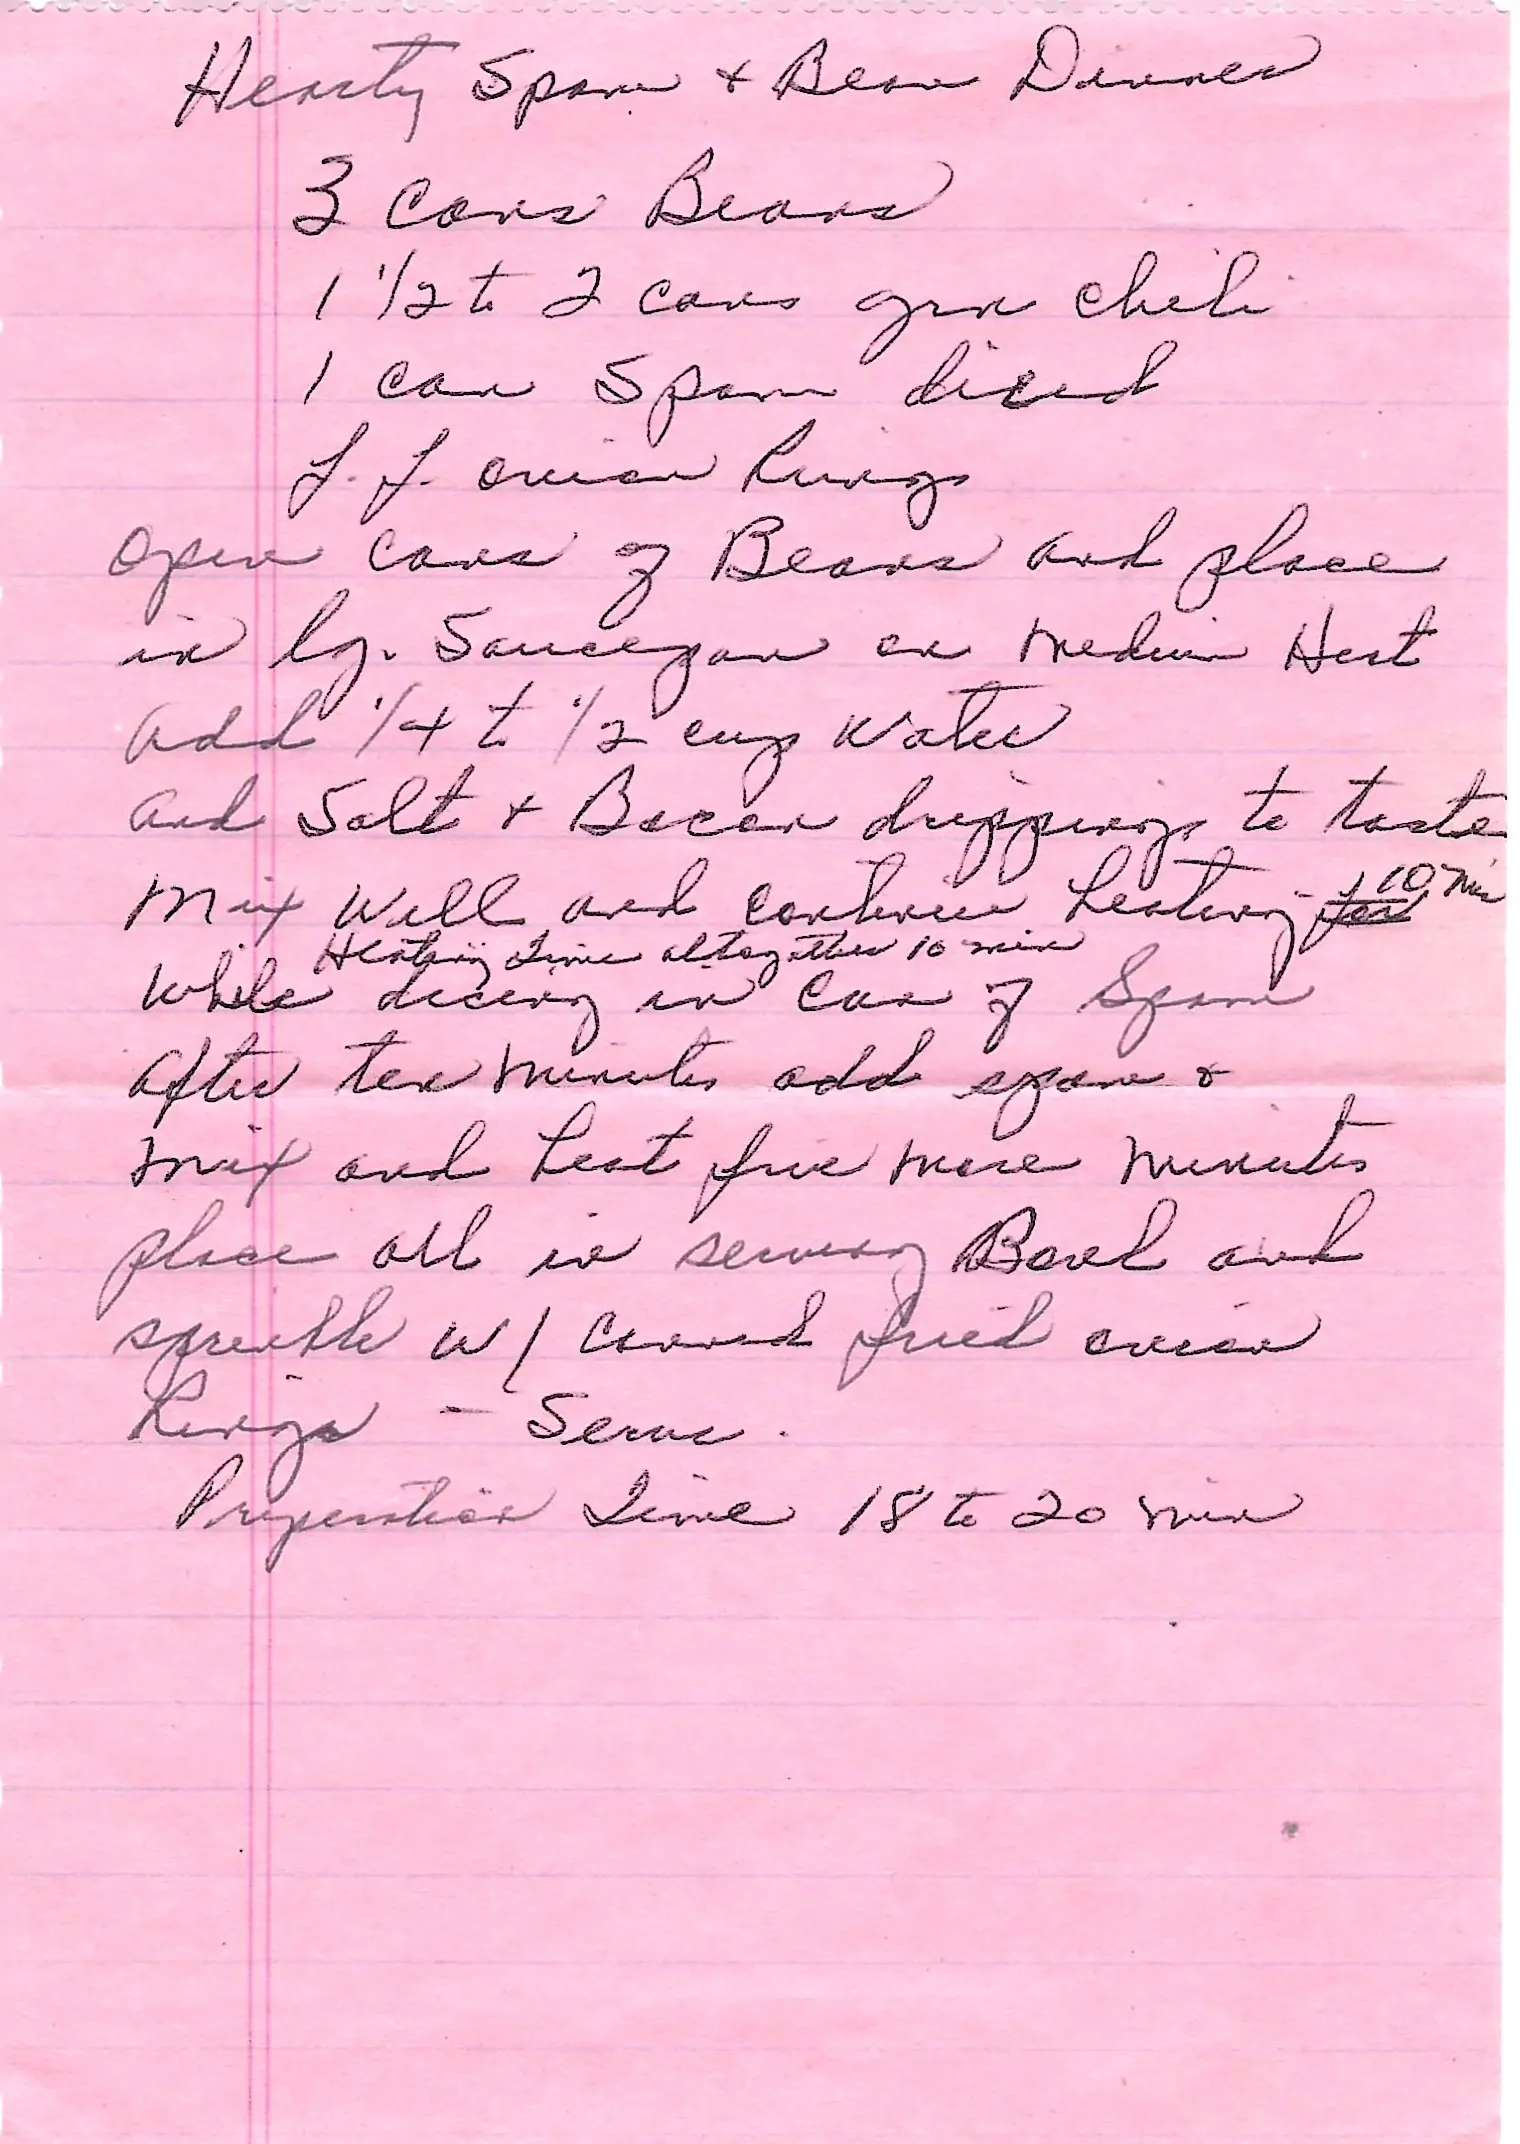 Hearty Spam + Bean Dinner
3 Cans Beans
1 1/2 to 2 cans grn chili
1 can Spam diced
F. F. onion Rings
Open cans of Beans and place
in lg. Saucepan on Medium Heat
Add 1/4 to 1/2 cup Water
and Salt + Bacon drippings to taste
Mix Well and continue heating for 10 Min
Heating Time altogether 10 min
While dicing in Can of Spam
After ten Minutes add spam &
Mix and heat five more Minutes
place all in serving Bowl and
sprinkle w/ Canned fried onion
Rings - Serve.
Preperation Time 18 to 20 min